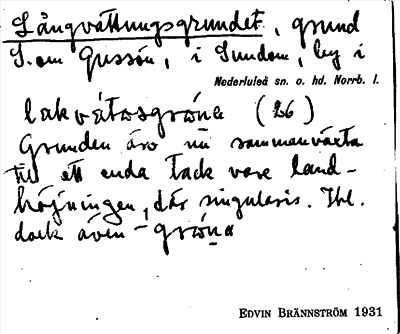 Långvåttungsgrundet, grund
S. om Gussön, i Sundom, by i
Nederluleå sn. o. hd. Norrb. l.
(26)
Grunden äro nu sammanväxta
till ett enda tack vare land-
höjningen, där singularis. Ibl.
dock även
EDVIN BRÄNNSTRÖM 1931